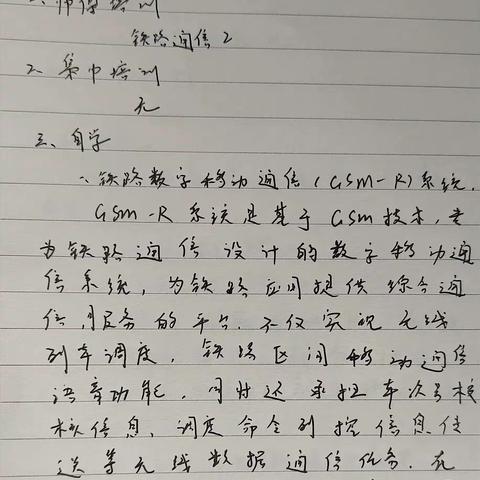 一、师傅培训
铁路通信2
2、集中培训
无
三、自学
1、铁路数字移动通信(GSM-R)系统.
GSM-R系统是基于GSM技术,专
为铁路通信设计的数字移动通
信系统,为铁路应用提供综合通
信服务的平台.不仅实现无线
列车调度,铁路区间移动通信
语音功能,同时还承担车次号校
核信息、调度命令列控信息传
送等无线数据通信任务.在